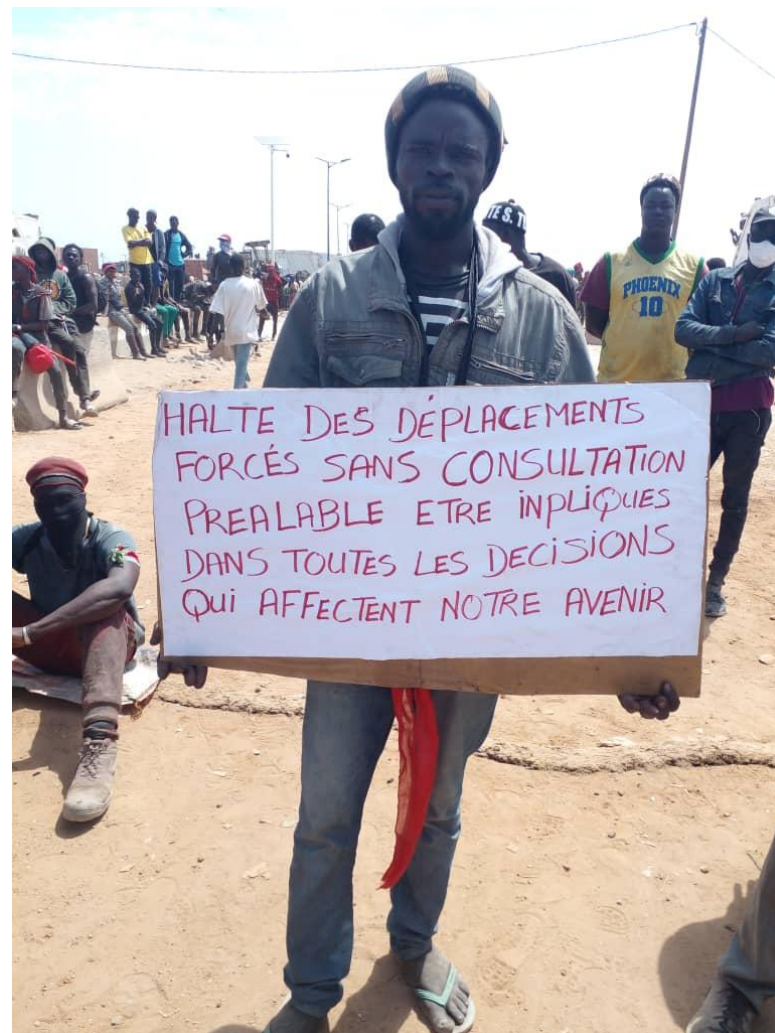 HALTE DES DÉPLACEMENTS
FORCÉS SANS CONSULTATION
PREALABLE ETRE INPLIQUES
DANS TOUTES LES DÉCISIONS
QUI AFFECTENT NOTRE AVENIR
PHOENIX
10